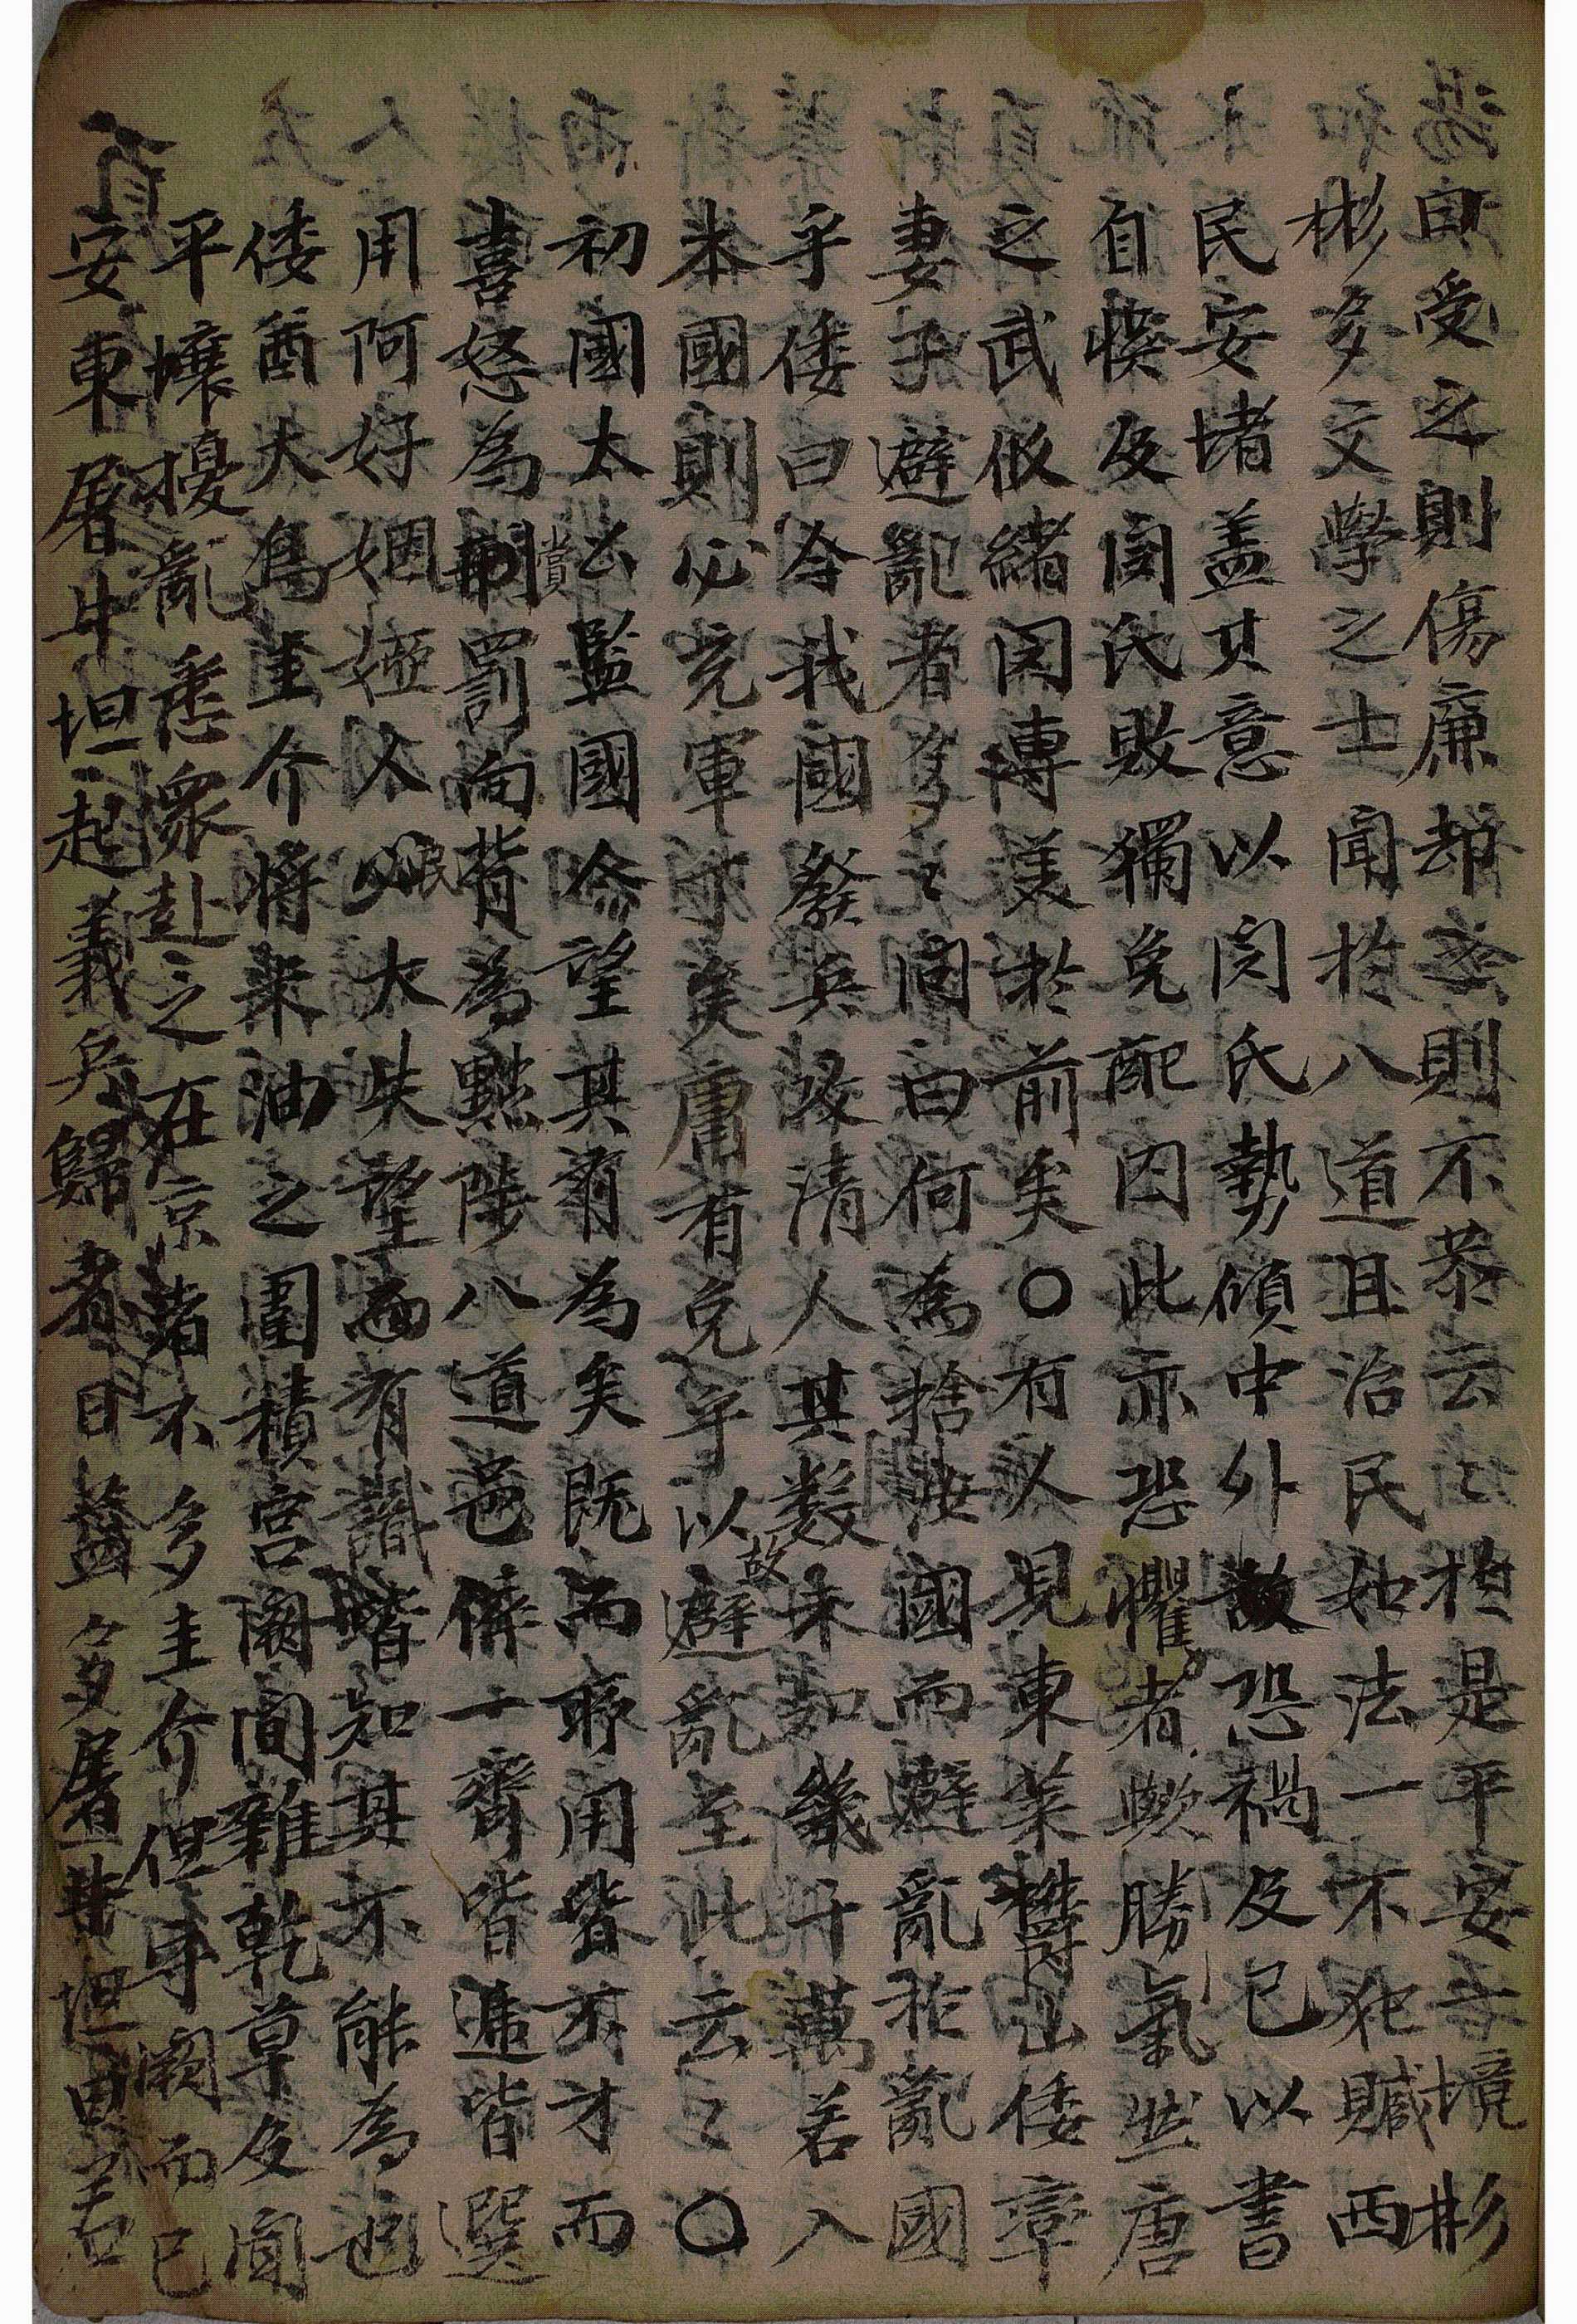 曰受之則傷廉却之則不恭云々於是平安一境彬
彬多文學之士聞於八道且治民如法一不犯贓西
民安堵盖其意以閔氏勢傾中外故恐禍及己以書
自悞及閔氏敗獨免配因此亦恐懼者歟勝氣些唐
之武攸緒因專美於前矣○有人見東萊欝山倭章
妻子避亂者多々問曰何爲捨汝國而避亂於亂國
乎倭曰今我國發兵攻清人其數未知幾千萬若入
本國則必充軍丁矣庸有免乎以故避亂至此云々○
初國太公監國令望其有爲矣既而所用皆不才而
喜怒為賞罰向背為黜陟八道邑倅一齊皆遞皆選
用阿好姻婭人民大失望而有識皆知其不能為也
倭酋大鳥圭介將來油之圍積宮闕間雜乾草及闻
平壤擾亂悉衆赴之在京諸不多圭介但守闕而已
安東屠牛坦起義兵歸者日益多屠牛坦曰若